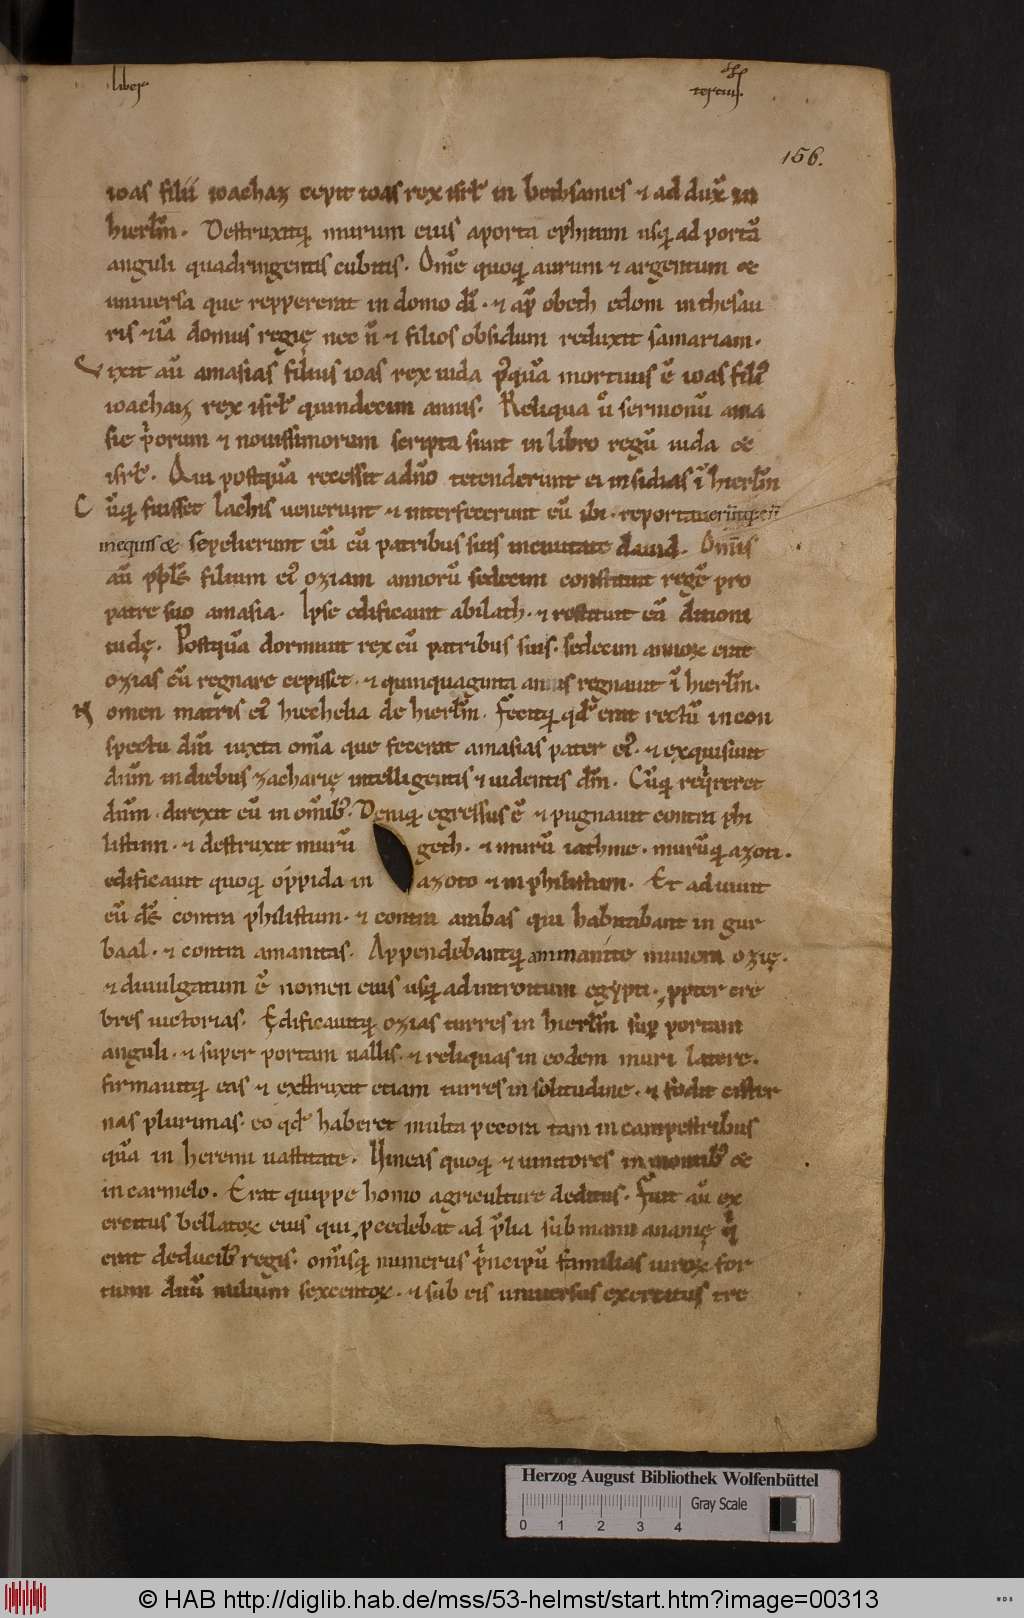 liber
tertius.
156.
ioas filii ioachaz cepit ioas rex isrl̄ in bethsames ⁊ ad dux̄ in
hierl̄m. Destruxitq; murum eius aporta ephraim usq; ad portā
anguli quadringentis cubitis. Om̄e quoq; aurum ⁊ argentum &
uniuersa que reppererat in domo dī. ⁊ ap̄ obeth edom in thesau
ris ⁊iā domus regię nec n̄ ⁊ filios obsidum reduxit samariam.
Vixit aū amasias filius ioas rex iuda p̄quā mortuus ē ioas filī
ioachaz rex isrl̄ quindecim annis. Reliqua ū sermonū ama
sie p̄orum ⁊ nouissimorum scripta sunt in libro regū iuda &
isrl̄. Qui postquā recessit adn̄o tetenderunt ei insidias ī hierl̄m
Cūq; fuisset lachis uenerunt ⁊ interfecerunt eū ibi. reportauerūtq; eū
inequis & sepelierunt eū cū patribus suis inciuitate dauid. Om̄is
aū ppl̄s filium eī oziam annorū sedecim constituit regē pro
patre suo amasia. Ipse edificauit ahilath. ⁊ restituit eā ditioni
iudę. Postquā dormiuit rex cū patribus suis. sedecim annoꝝ erat
ozias cū regnare cepisset. ⁊ quinquaginta annis regnauit ī hierl̄m.
Nomen matris eī hiechelia de hierl̄m. fecitq; qd̄ erat rectū incon
spectu dn̄i iuxta om̄a que fecerat amasias pater eī. ⁊ exquisiuit
dn̄m indiebus zacharię intelligentis ⁊ uidentis dm̄. Cūq; req̄reret
dn̄m. direxit eū in om̄ib;. Deniq; egressus ē ⁊ pugnauit contra phi
listiim. ⁊ destruxit murū geth. ⁊ murū iabnie. murūq; azoti.
edificauit quoq; oppida in azoto ⁊ in philistiim. Et adiuuit
eū ds̄ contra philistiim. ⁊ contra arabas qui habitabant in gur
baal. ⁊ contra amanitas. Appendebantq; ammanite munera ozię.
⁊ diuulgatum ē nomen eius usq; adintroitum egẏpti. ꝓpter cre
bres uictorias. Edificauitq; ozias turres in hierl̄m sup̄ portam
anguli. ⁊ super portam uallis. ⁊ reliquas in eodem muri latere.
firmauitq; eas ⁊ exstruxit etiam turres in solitudine. ⁊ fodit cister
nas plurimas. eo qd̄ haberet multa pecora tam in campestribus
quā in heremi uastitate. Uineas quoq; ⁊ uinitores in montib; &
in carmelo. Erat quippe homo agriculture deditus. fuit aū ex
ercitus bellatoꝝ eius qui ꝓcedebat ad p̄lia sub manu ananię q̄
erat deducib; regis. om̄isq; numerus p̄ncipū familias uiroꝝ for
tium duū milium sexcentoꝝ. ⁊ sub eis uniuersus exercitus tre
Herzog August Bibliothek Wolfenbüttel
Gray Scale
0 1 2 3 4
© HAB http://diglib.hab.de/mss/53-helmst/start.htm?image=00313